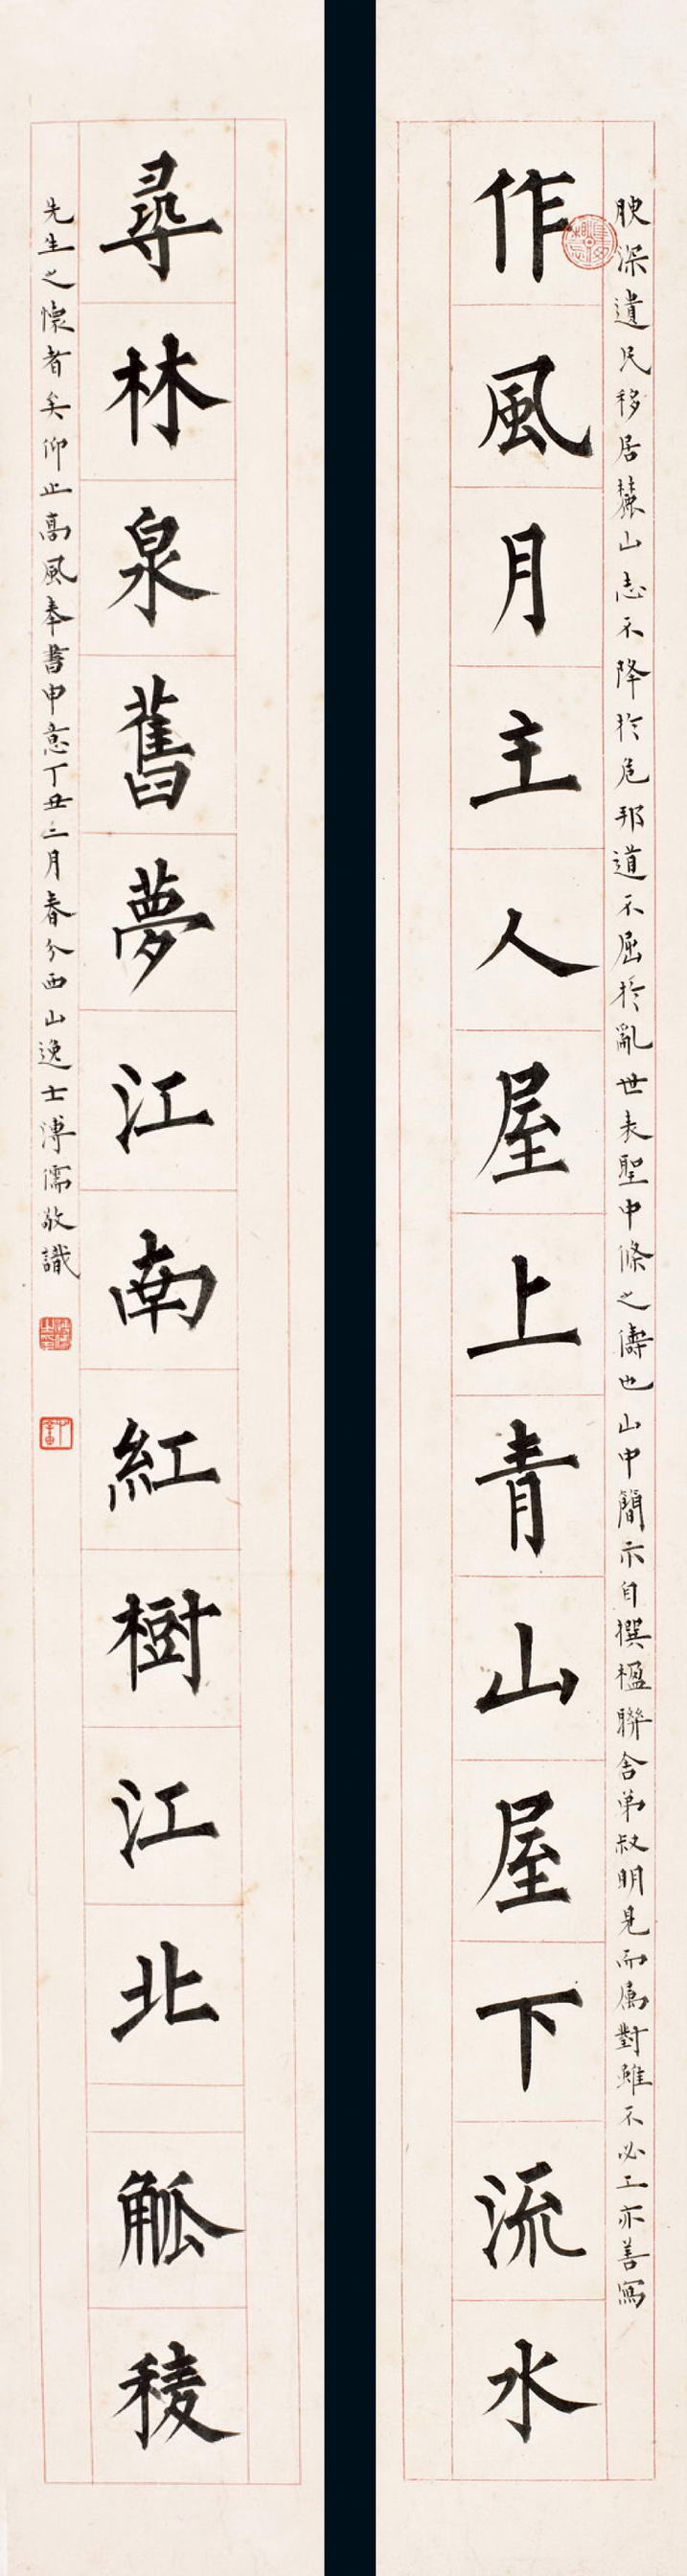 腴深遺民移居麓山志不降於危邦道不屈於亂世表聖中條之儔也山中簡示自撰楹聯舍弟叔明見而属對雖不必工亦善寫
作風月主人屋上青山屋下流水
尋林泉舊夢江南紅樹江北觚稜
先生之懷者矣仰止高風奉書申意丁丑二月春分西山逸士溥儒敬識